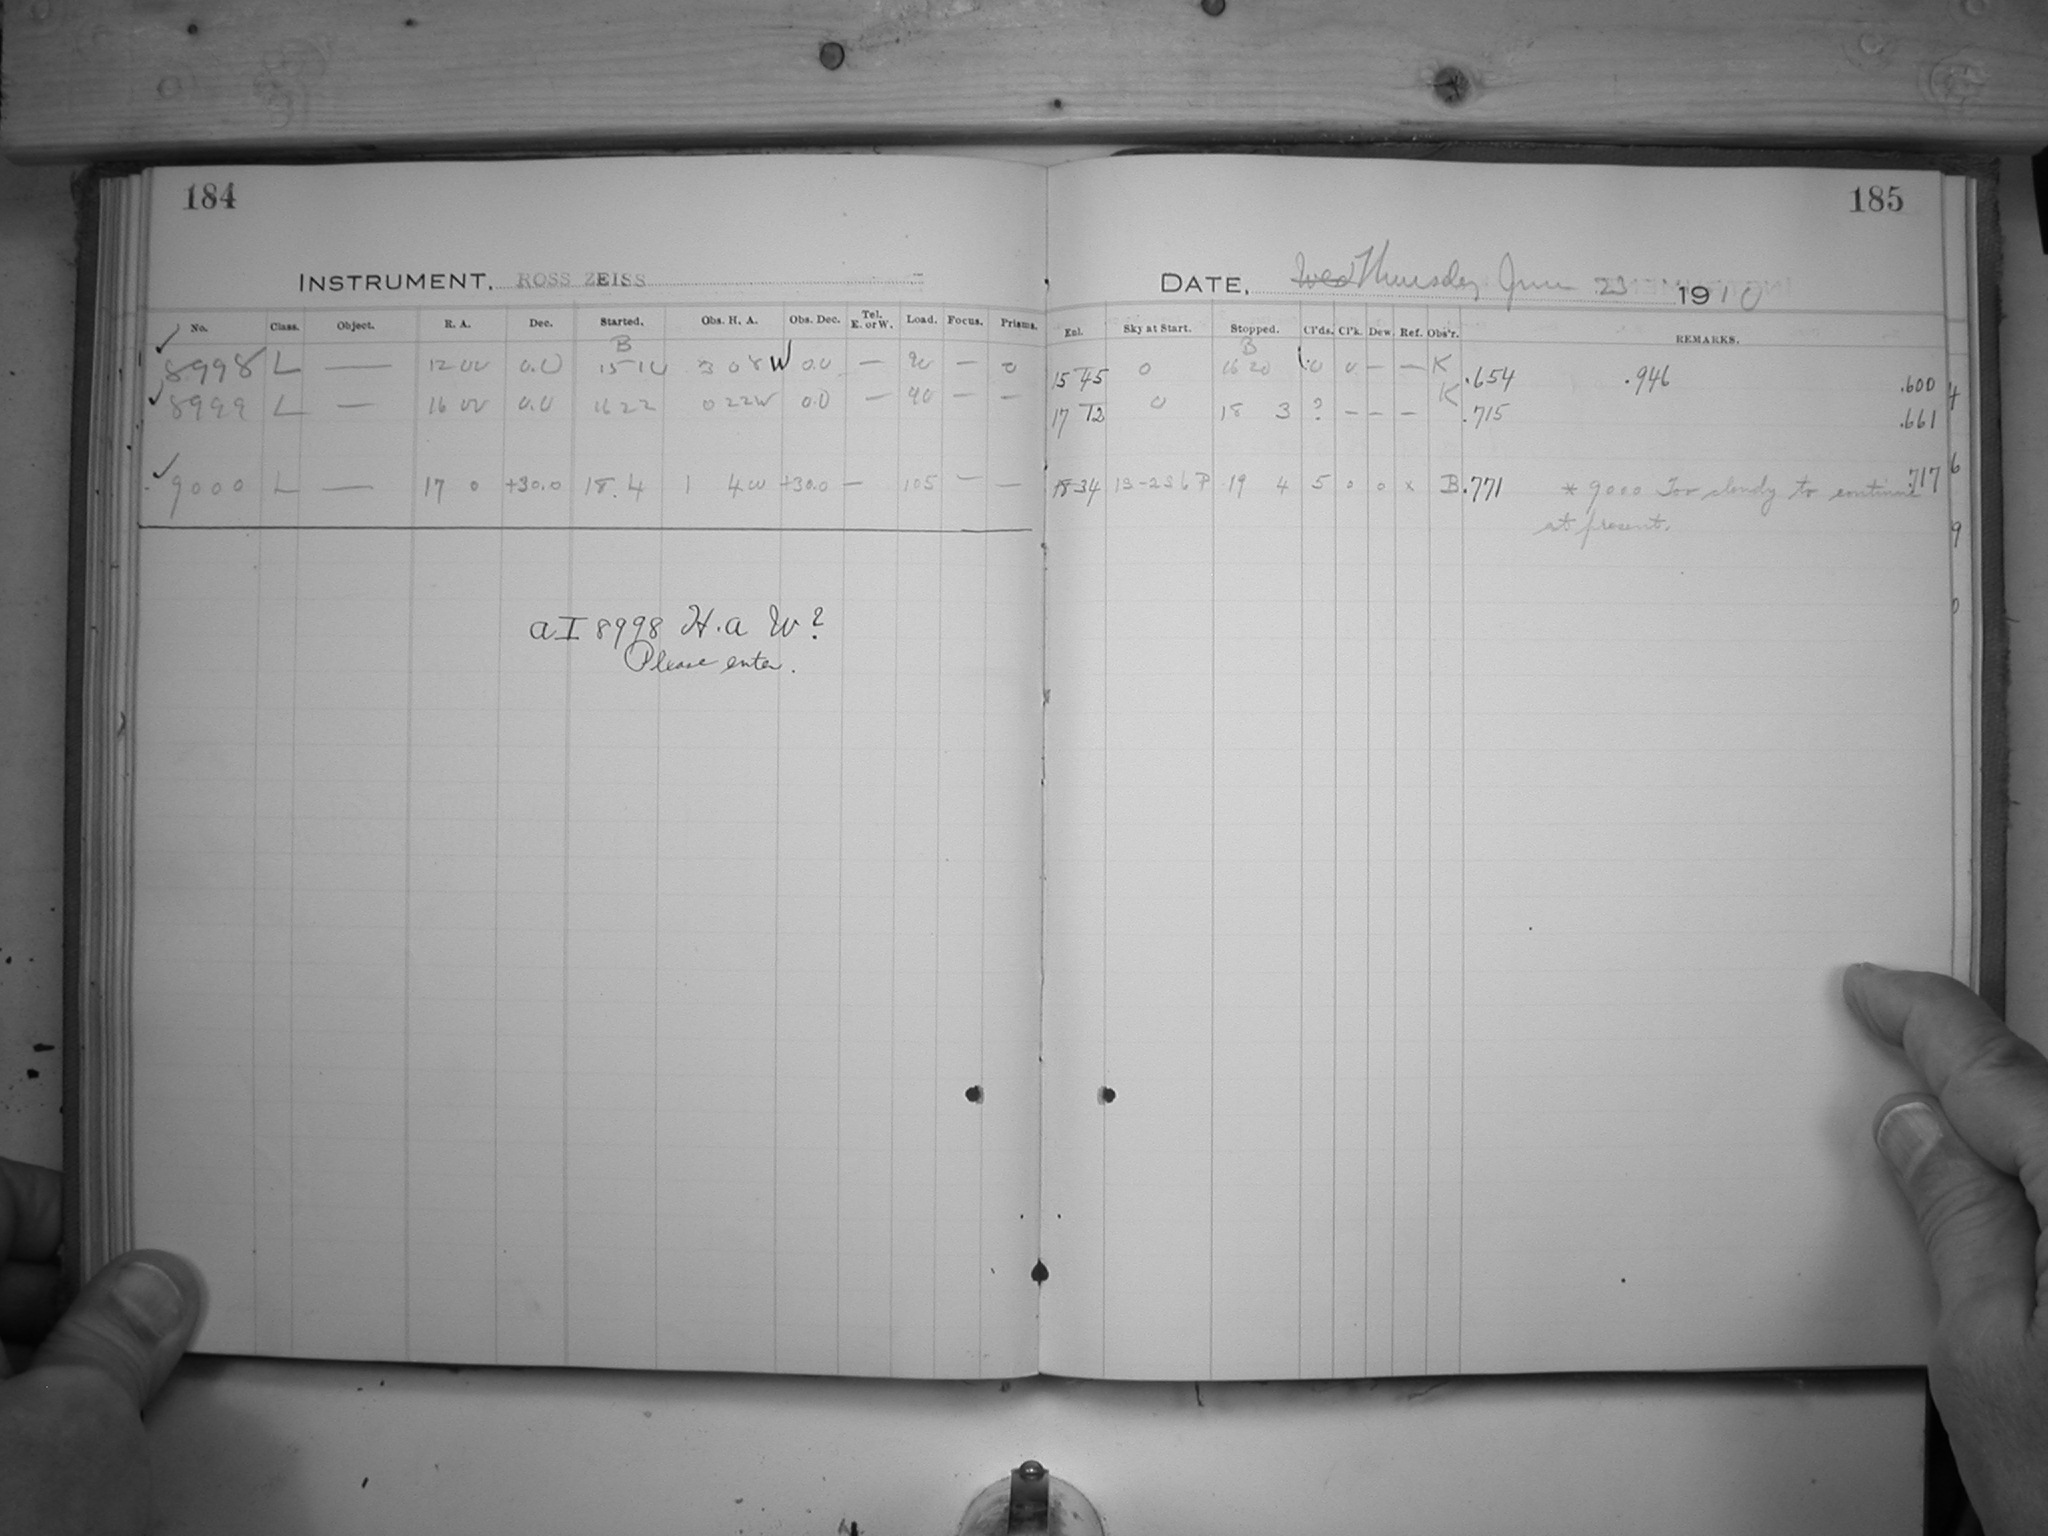 184
INSTRUMENT. ROSS ZEISS
No. Class. Object. R. A. Dec. Started. Obs. H. A. Obs. Dec. Tel. E. or W. Load. Focus. Prisms.
B
8998 L — 12 00 0.0 15 10 3 08 W 0.0 — 90 — 0
8999 L — 16 00 0.0 16 22 0 22W 0.0 — 90 — —
9000 L — 17 0 +30.0 18.4 1 4W +30.0 — 105 — —
a I 8998 H.a W?
Please enter.
185
DATE. Wed Thursday June 23 1910
Exl. Sky at Start. Stopped. Cl'ds. Cl'k. Dew. Ref. Obs'r. REMARKS.
B
15 45 0 16 20 0 0 — — K .654 .946 .600
17 12 0 18 3 ? — — — K .715 .661
18 34 13-236 P 19 4 5 0 0 x B .771 * 9000 Too cloudy to continue .717
at present.